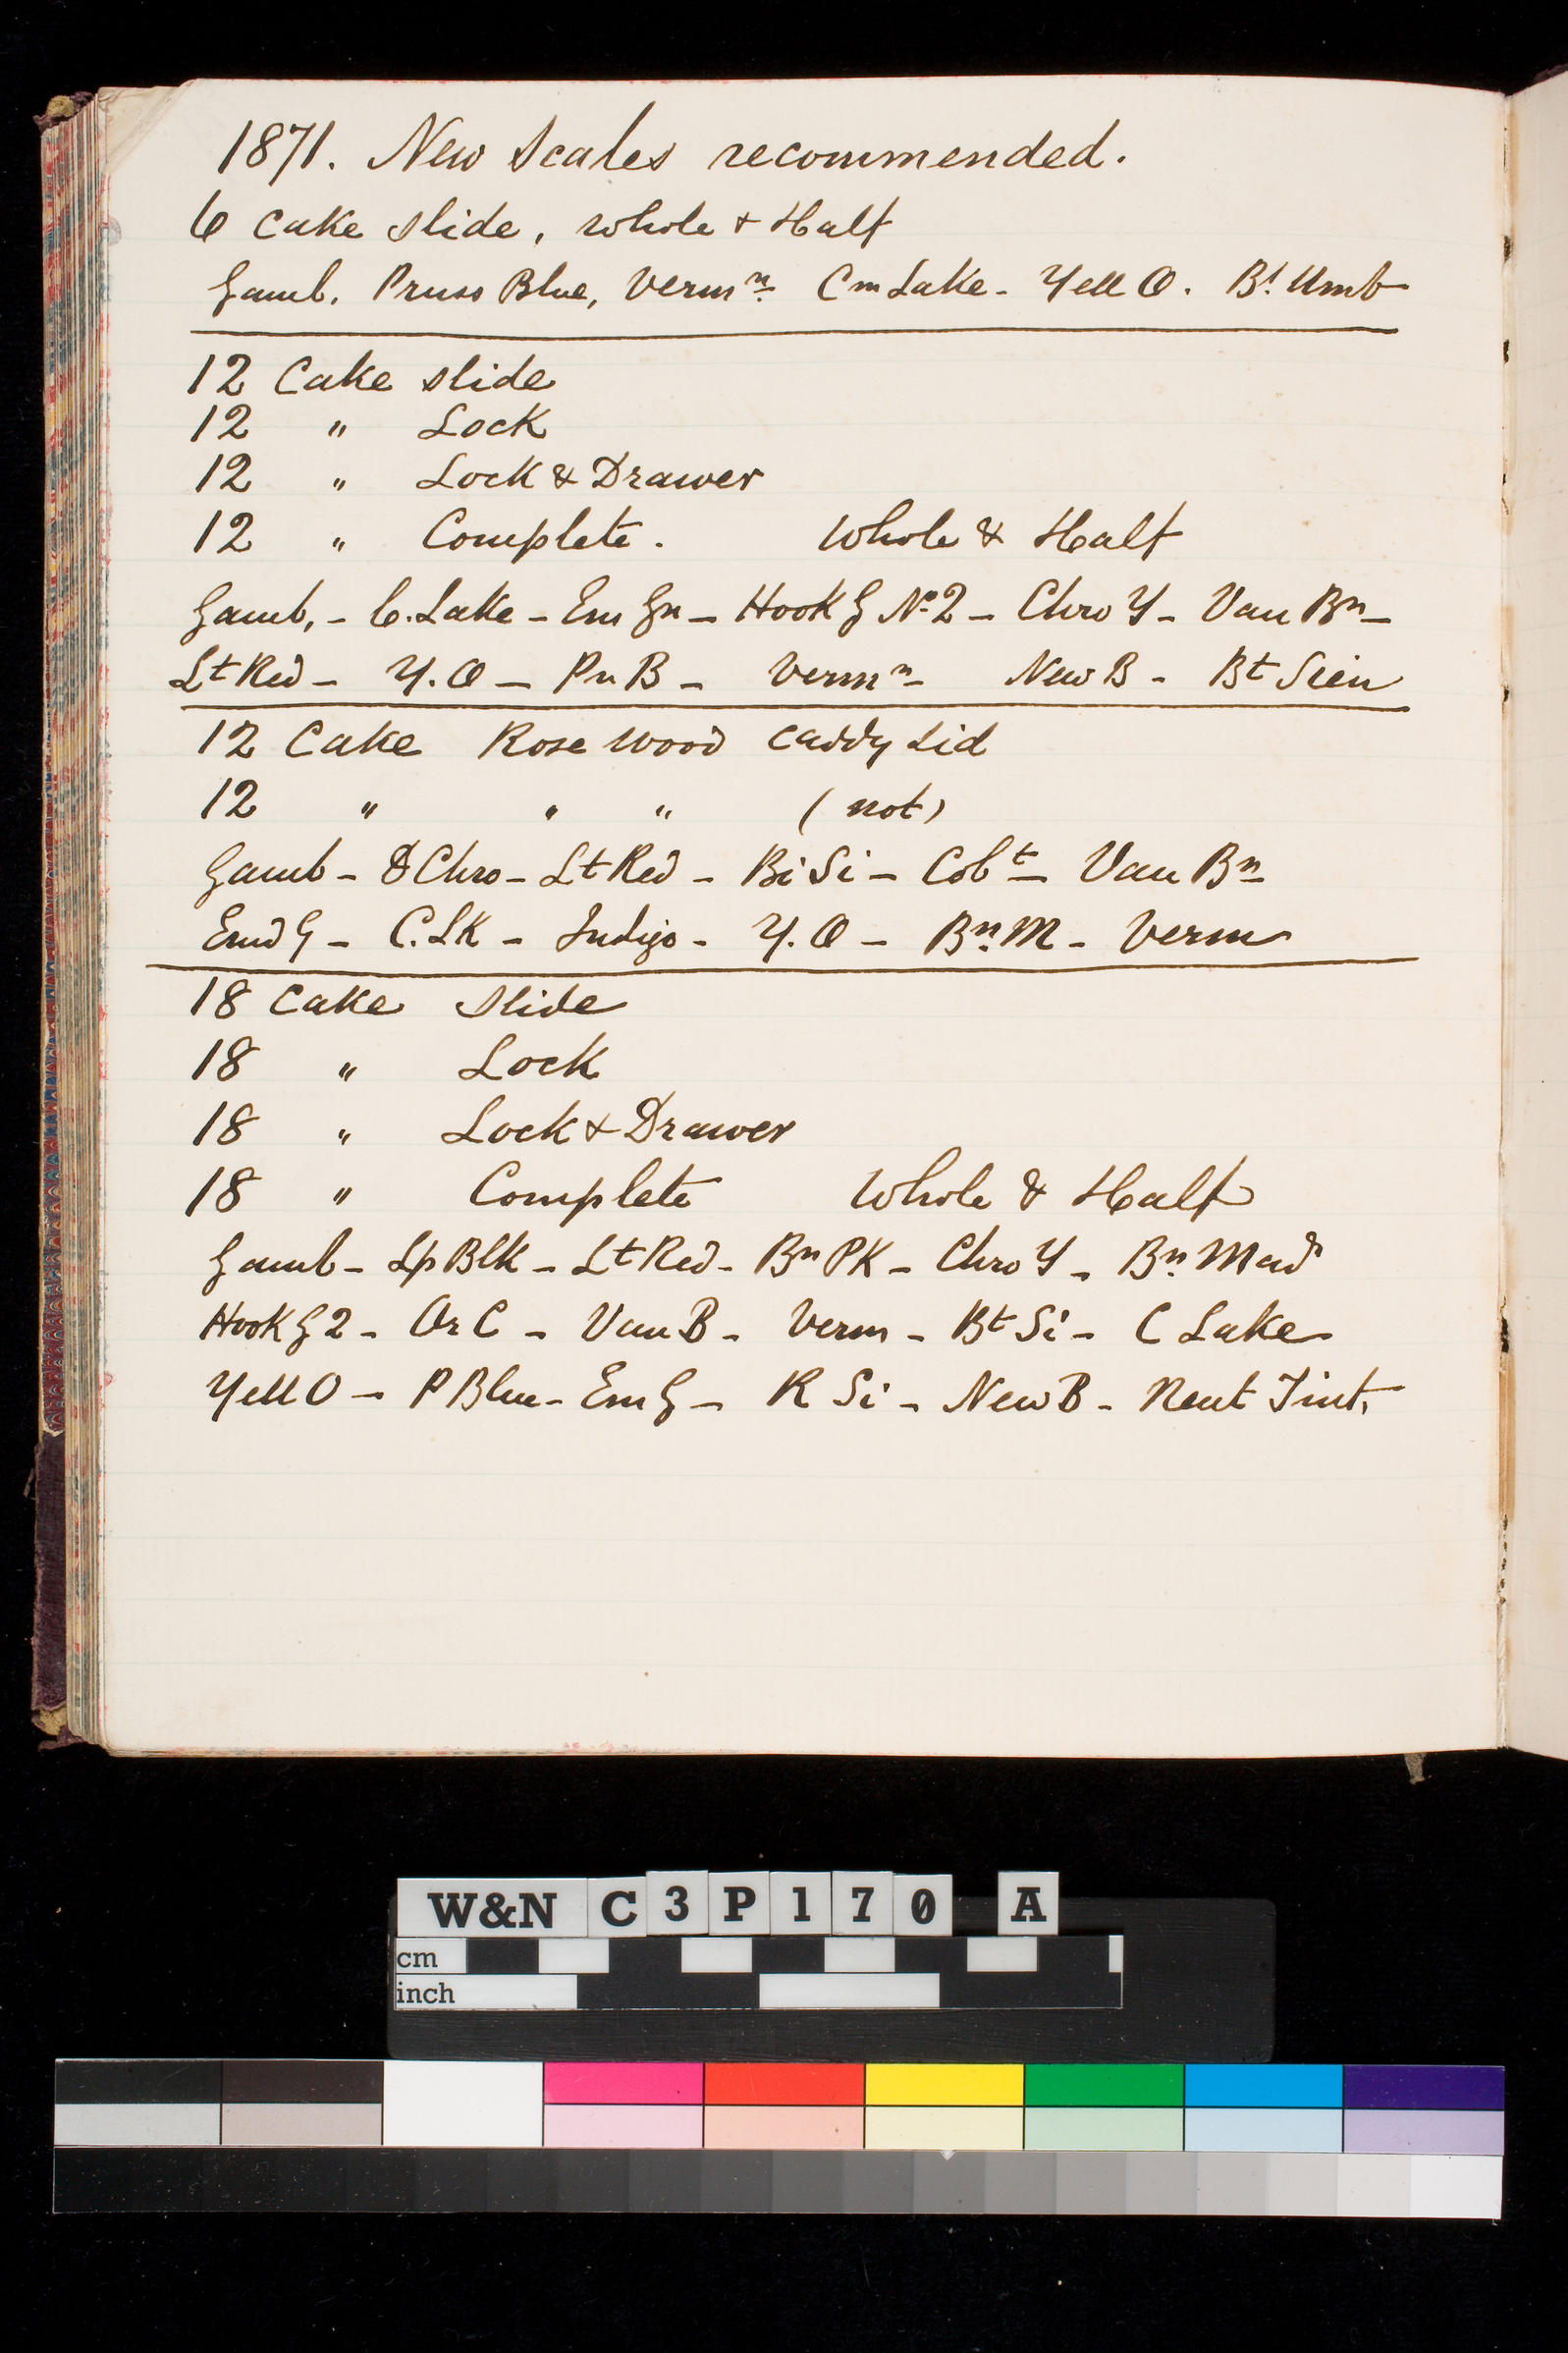 1871. New Scales recommended.
6 Cake slide, Whole & Half
Gamb, Pruss Blue, Vermⁿ Cm Lake - Yell O. Bt Umb
12 Cake slide
12 " Lock
12 " Lock & Drawer
12 " Complete. Whole & Half
Gamb, - C. Lake - Em Gn - Hook G No 2 - Chro Y - Van Bⁿ -
Lt Red - Y. O - Pn B - Vermⁿ - New B - Bt Sien
12 Cake Rose wood Caddy Lid
12 " " " (not)
Gamb - Chro - Lt Red - Bt Si - Cobt - Van Bⁿ
Emd G - C. LK - Indigo - Y. O - Bⁿ M - Verm
18 Cake slide
18 " Lock
18 " Lock & Drawer
18 " Complete Whole & Half
Gamb - Lp Blk - Lt Red - Bⁿ PK - Chro Y - Bⁿ Mad
Hook G 2 - Or C - Van B - Verm - Bt Si - C Lake
Yell O - P Blue - Em G - R Si - New B - Neut Tint.
W&N C3P170 A
cm
inch